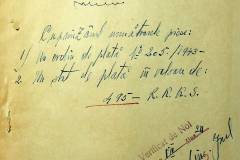 Cuprinzând următoarele piese:
1) Un ordin de plată № 205/1945-
2) Un stat de plată în valoare de:
495 - R.R.R.S.
Verificat de Noi